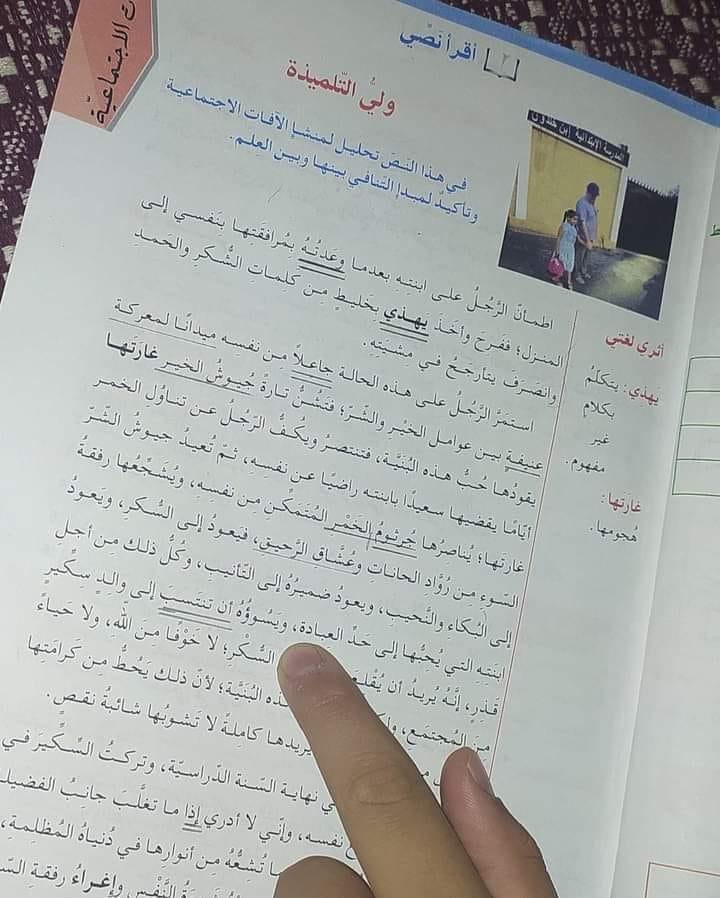 ت الاجتماعيّة
٢
أقرأ نَصّي
وليُّ التّلميذة
في هذا النّصّ تحليل لمنشإ الآفات الاجتماعية
وتأكيدٌ لمبدإ التّنافي بينها وبين العِلم.
المدرسة الإبتدائية إبن خلدون
اطمأنَّ الرَّجُلُ على ابنتِه بعدما وعَدتْهُ بِمُرافقتِها بنَفسي إلى
المنزل؛ ففَرحَ وأخَذَ يهذي بخليطٍ مِن كلمات الشُّكرِ والحمدِ
وانصَرَفَ يتأرجَحُ في مشيَتِهِ.
استمَرَّ الرَّجُلُ على هذه الحالة جاعلاً من نفسِه ميدانًا لمعركة
عنيفةٍ بين عوامل الخيْر والشّرّ؛ فتَشُنُّ تارةً جُيوشُ الخير غارَتَها
يقودُها حُبُّ هذه البُنَيَّة، فتنتصرُ ويكُفُّ الرّجُلُ عن تناوُلِ الخمر
أيّامًا يقضيها سعيدًا بابنته راضيًا عن نفسِه، ثمّ تُعيدُ جيوشُ الشّرّ
غارتَها؛ يُناصِرُها جُرثومُ الخَمْرِ المُتَمَكِّنِ مِن نفسِهِ، ويُشَجِّعُها رفقةُ
السّوءِ مِن رُوَّادِ الحاناتِ وعُشَّاقِ الرَّحيقِ، فيَعودُ إلى السُّكر، ويَعودُ
إلى البُكاء والنَّحيبِ، ويعودُ ضميرُهُ إلى التّأنيبِ، وكُلُّ ذلك مِن أجل
ابنَتِه التي يُحبُّها إلى حَدِّ العبادة، ويَسُوؤُه أن تَنتَسبَ إلى والدٍ سِكّيرٍ
قذِرٍ، إنَّهُ يُريدُ أن يُقْلعَ السُّكْرِ؛ لا خَوْفًا مِنَ اللّه، ولا حياءً
مِنَ المُجتمَعِ، البُنَيَّة؛ لأنّ ذلك يَحُطُّ مِن كَرامَتِها
يريدها كاملةً لا تَشوبُها شائبةُ نقصٍ.
نهاية السّنة الدّراسيّة، وتركتُ السِّكّيرَ في
نفسه، وإنّي لا أدري إذا ما تغلَّبَ جانِبُ
تُشِعُّهُ مِن أنوارِها في دُنياهُ المُظلِمة،
النَّفْسِ وإغراءُ رفقة
أثري لغتي
يَهذي: يتكلّمُ
بكلامٍ
غير
مفهوم.
غارتها:
هُجومها.